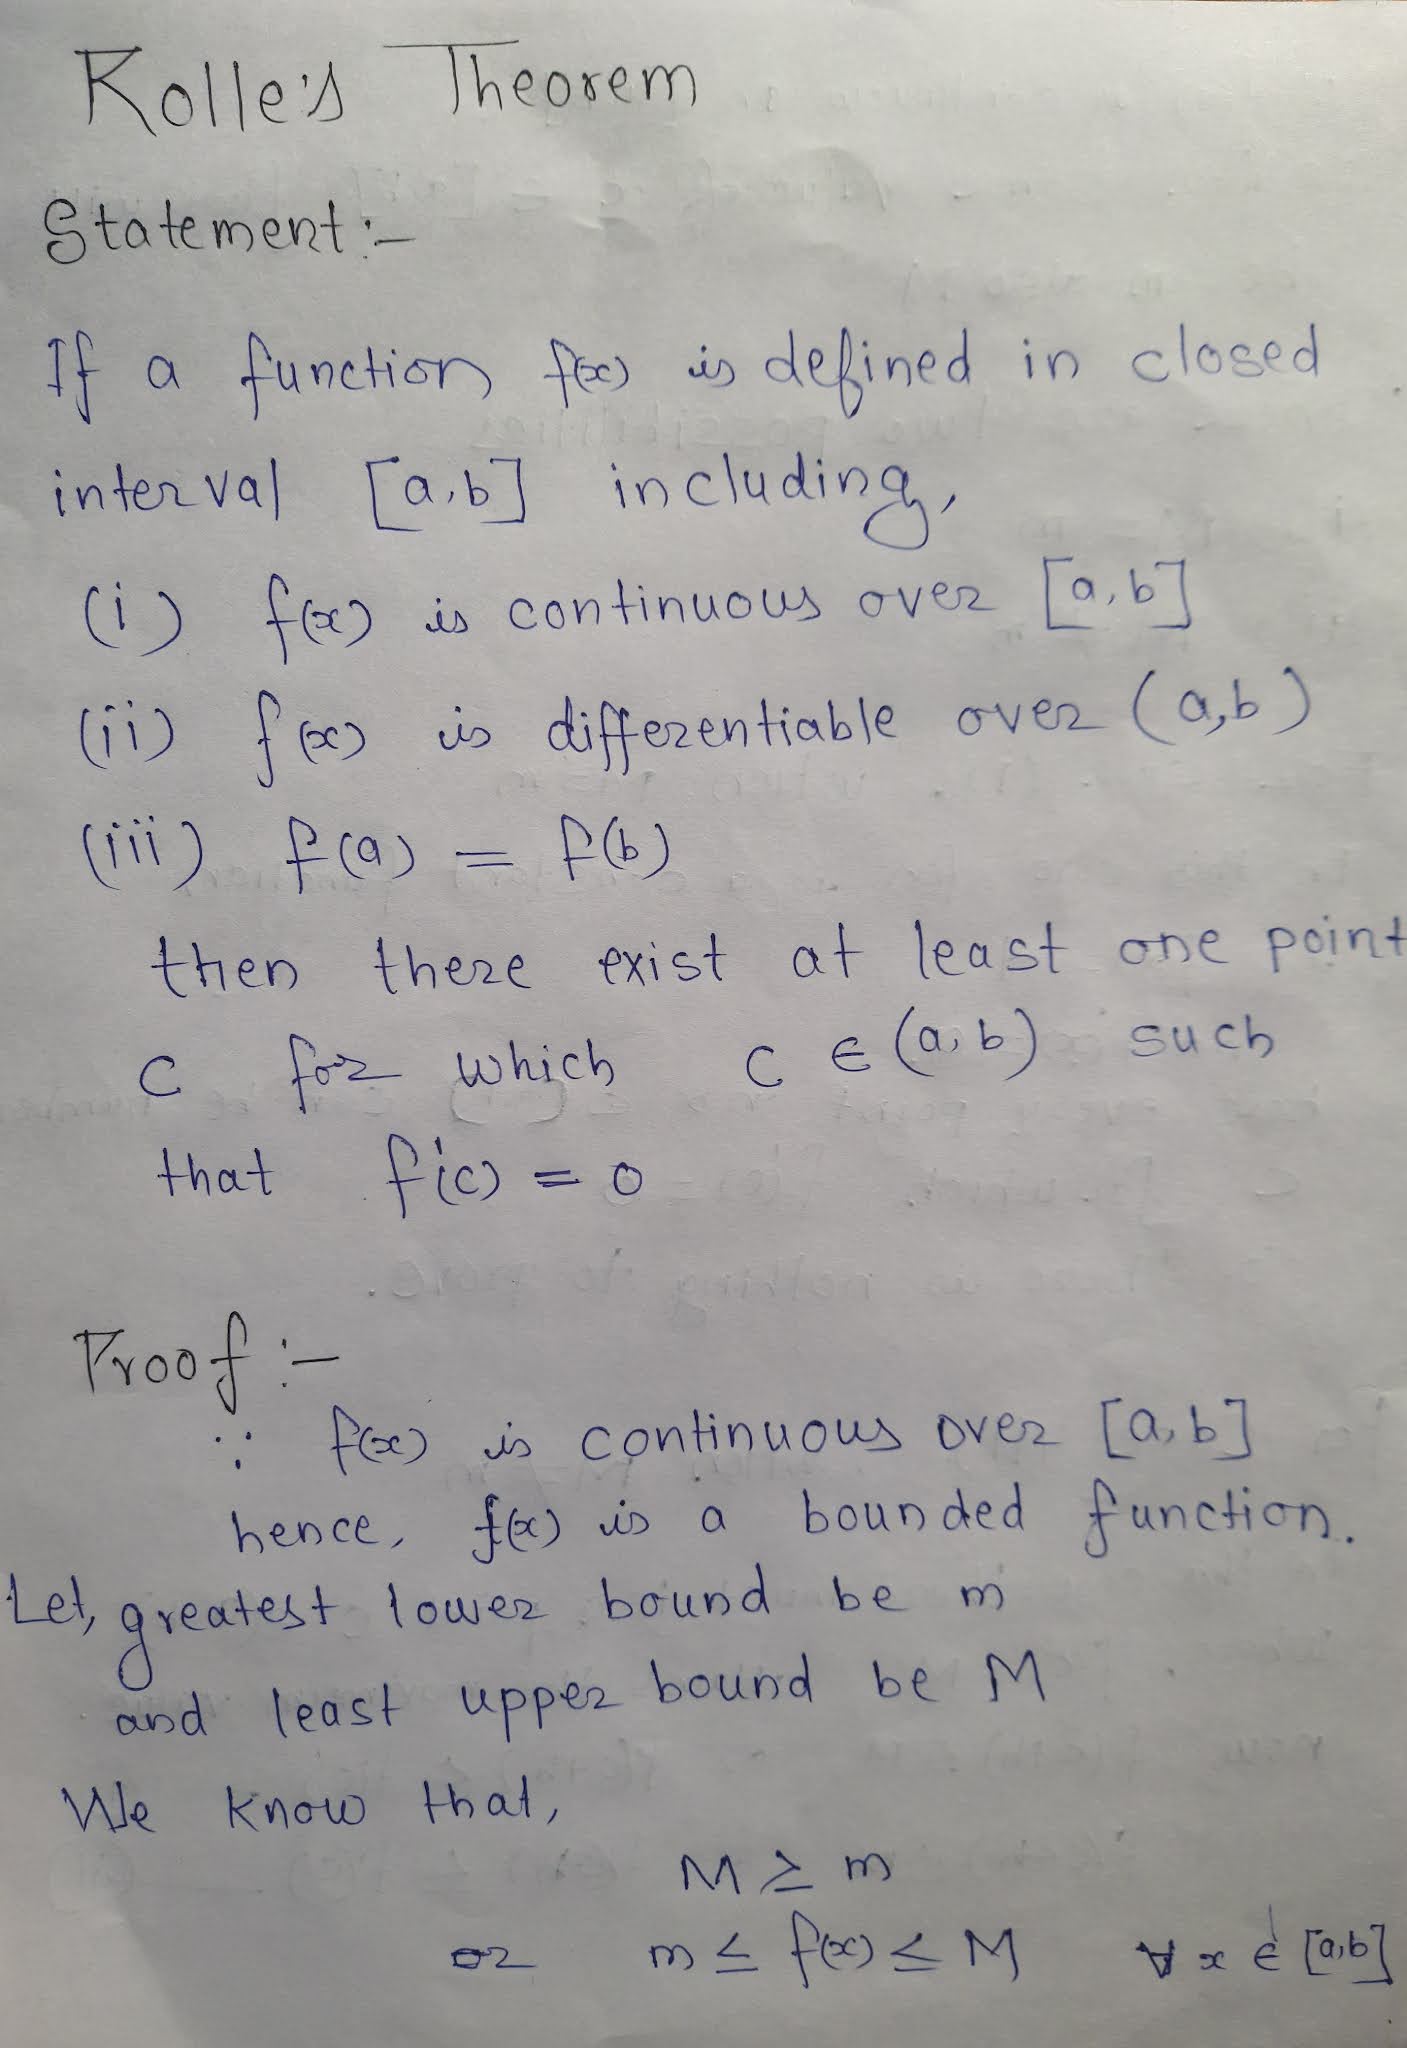 Rolle's Theorem
Statement:-
If a function f(x) is defined in closed
interval [a,b] including,
(i) f(x) is continuous over [a,b]
(ii) f(x) is differentiable over (a,b)
(iii) f(a) = f(b)
then there exist at least one point
C for which C ∈ (a,b) such
that f'(c) = 0
Proof :-
∵ f(x) is continuous over [a,b]
hence, f(x) is a bounded function.
Let, greatest lower bound be m
and least upper bound be M
We know that,
M ≥ m
or m ≤ f(x) ≤ M ∀ x ∈ [a,b]